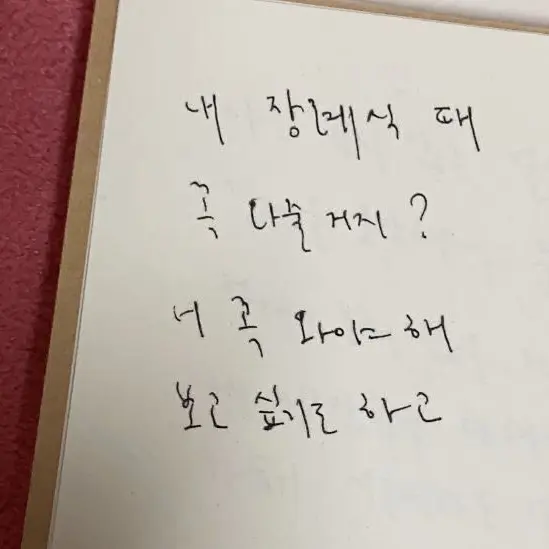 내 장례식 때
꼭 다 올 거지?
너 꼭 와야 해
보고 싶기도 하고